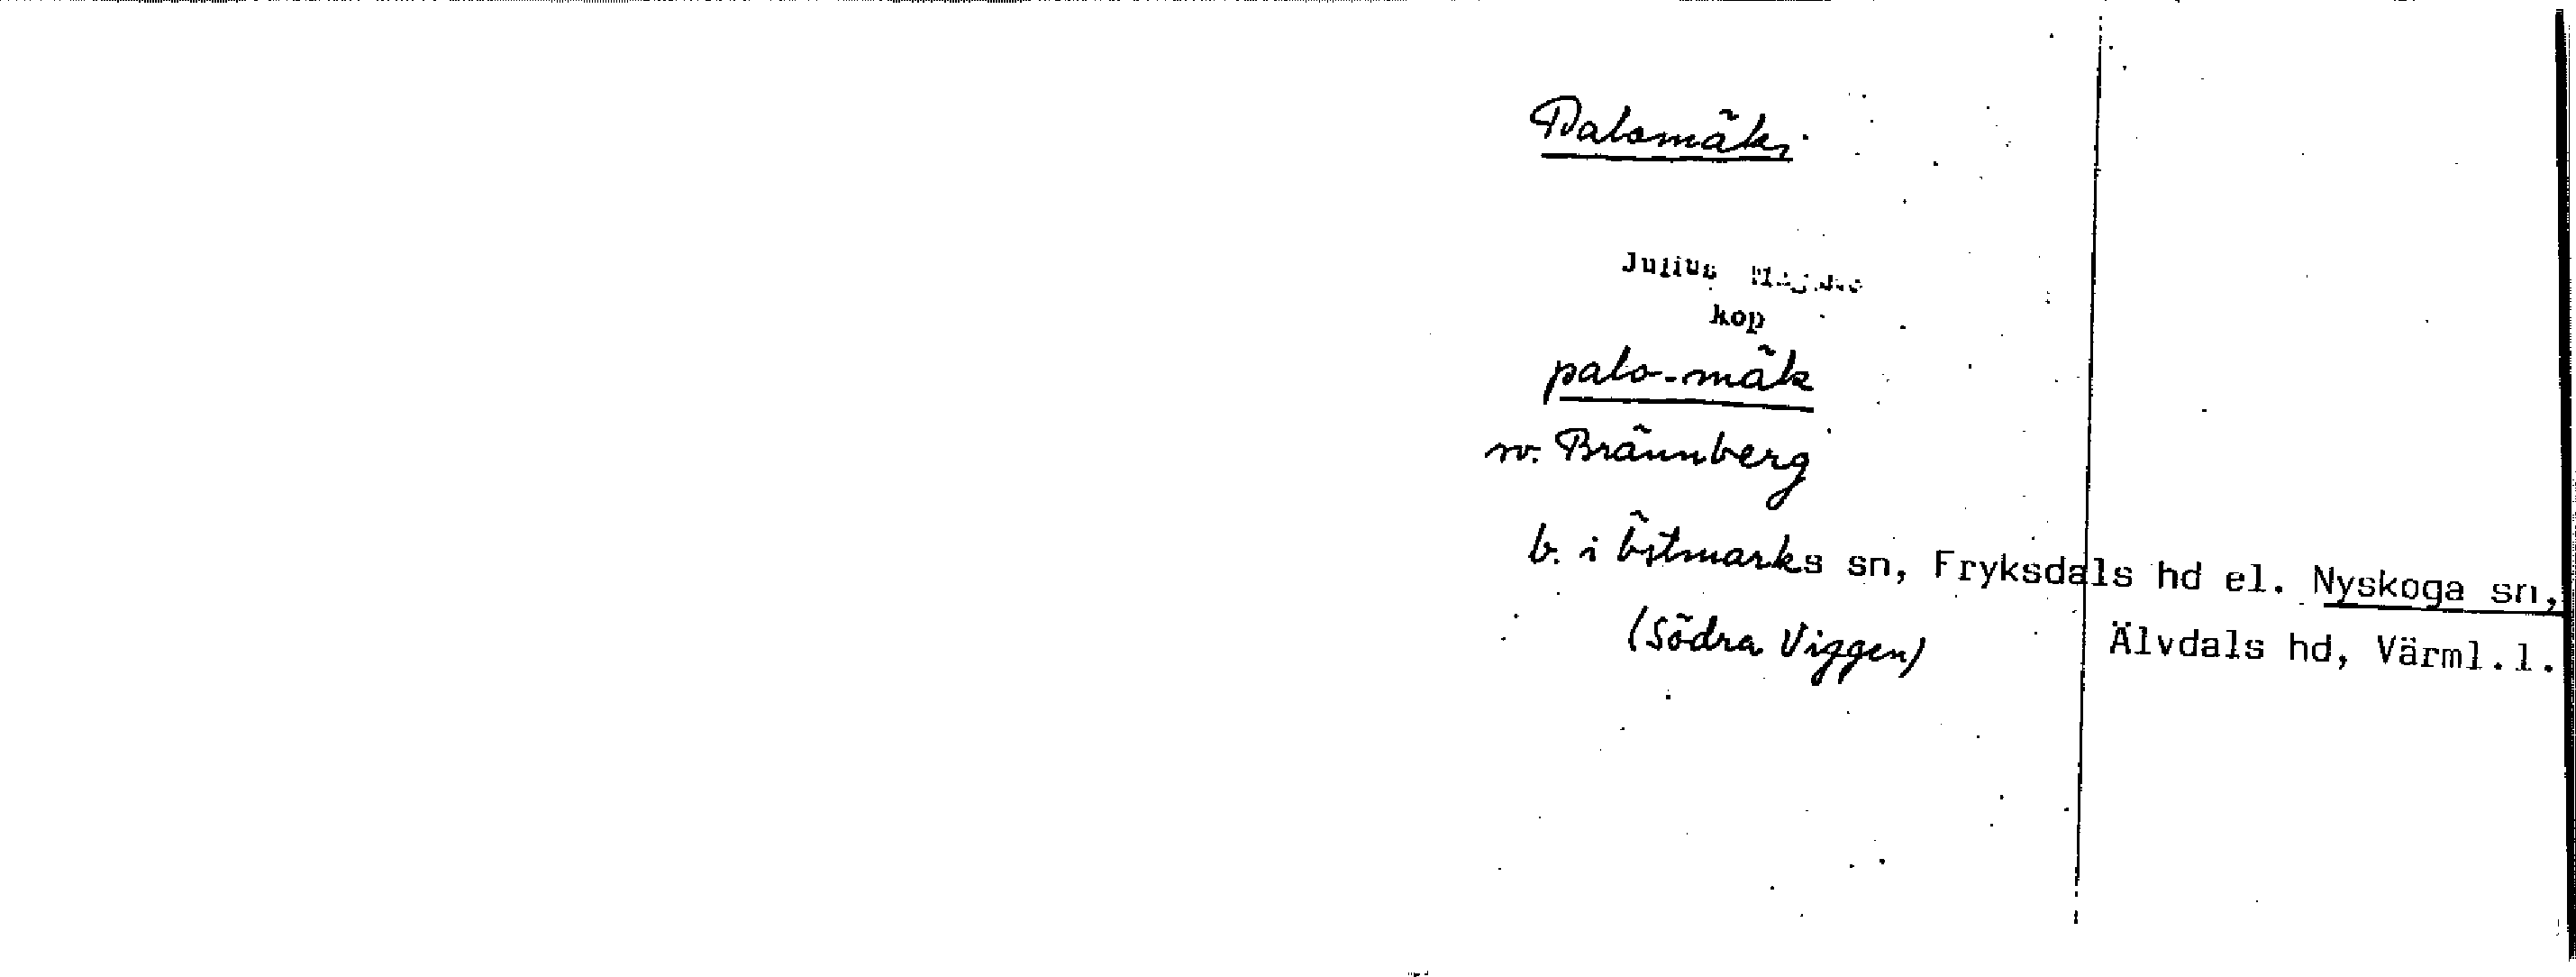 Palomäki
Julius
kop
palo-mäk
sv. Brännberg
b. i Östmarks sn, Fryksdals hd el. Nyskoga sn,
(Södra Viggen) Älvdals hd, Värml.l.